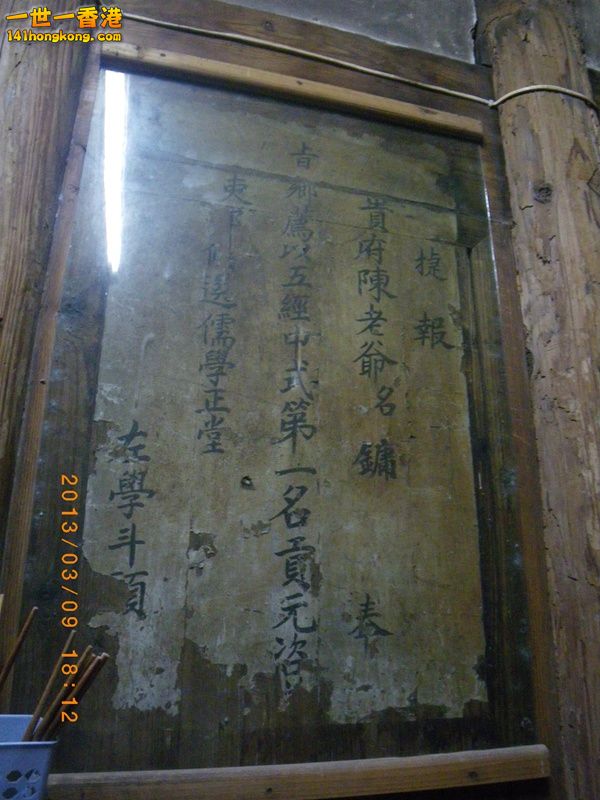 一世一香港
141hongkong.com
捷報
貴府陳老爺名鏞 奉
旨鄉薦以五經中式第一名貢元咨
吏部 選儒學正堂
在學斗項
2013/03/09 18:12